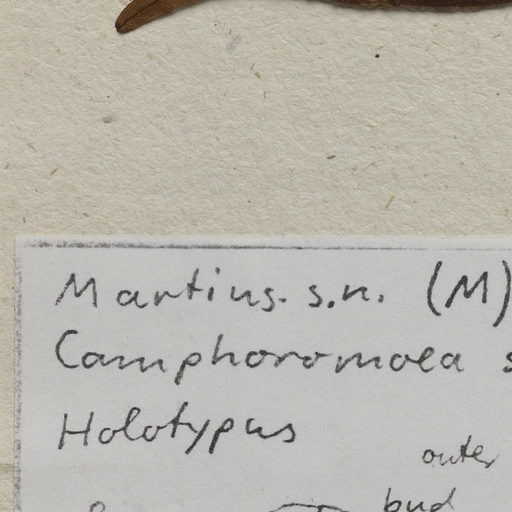 Martius. s.n. (M)
Camphoromoea s
Holotypus
outer
bud